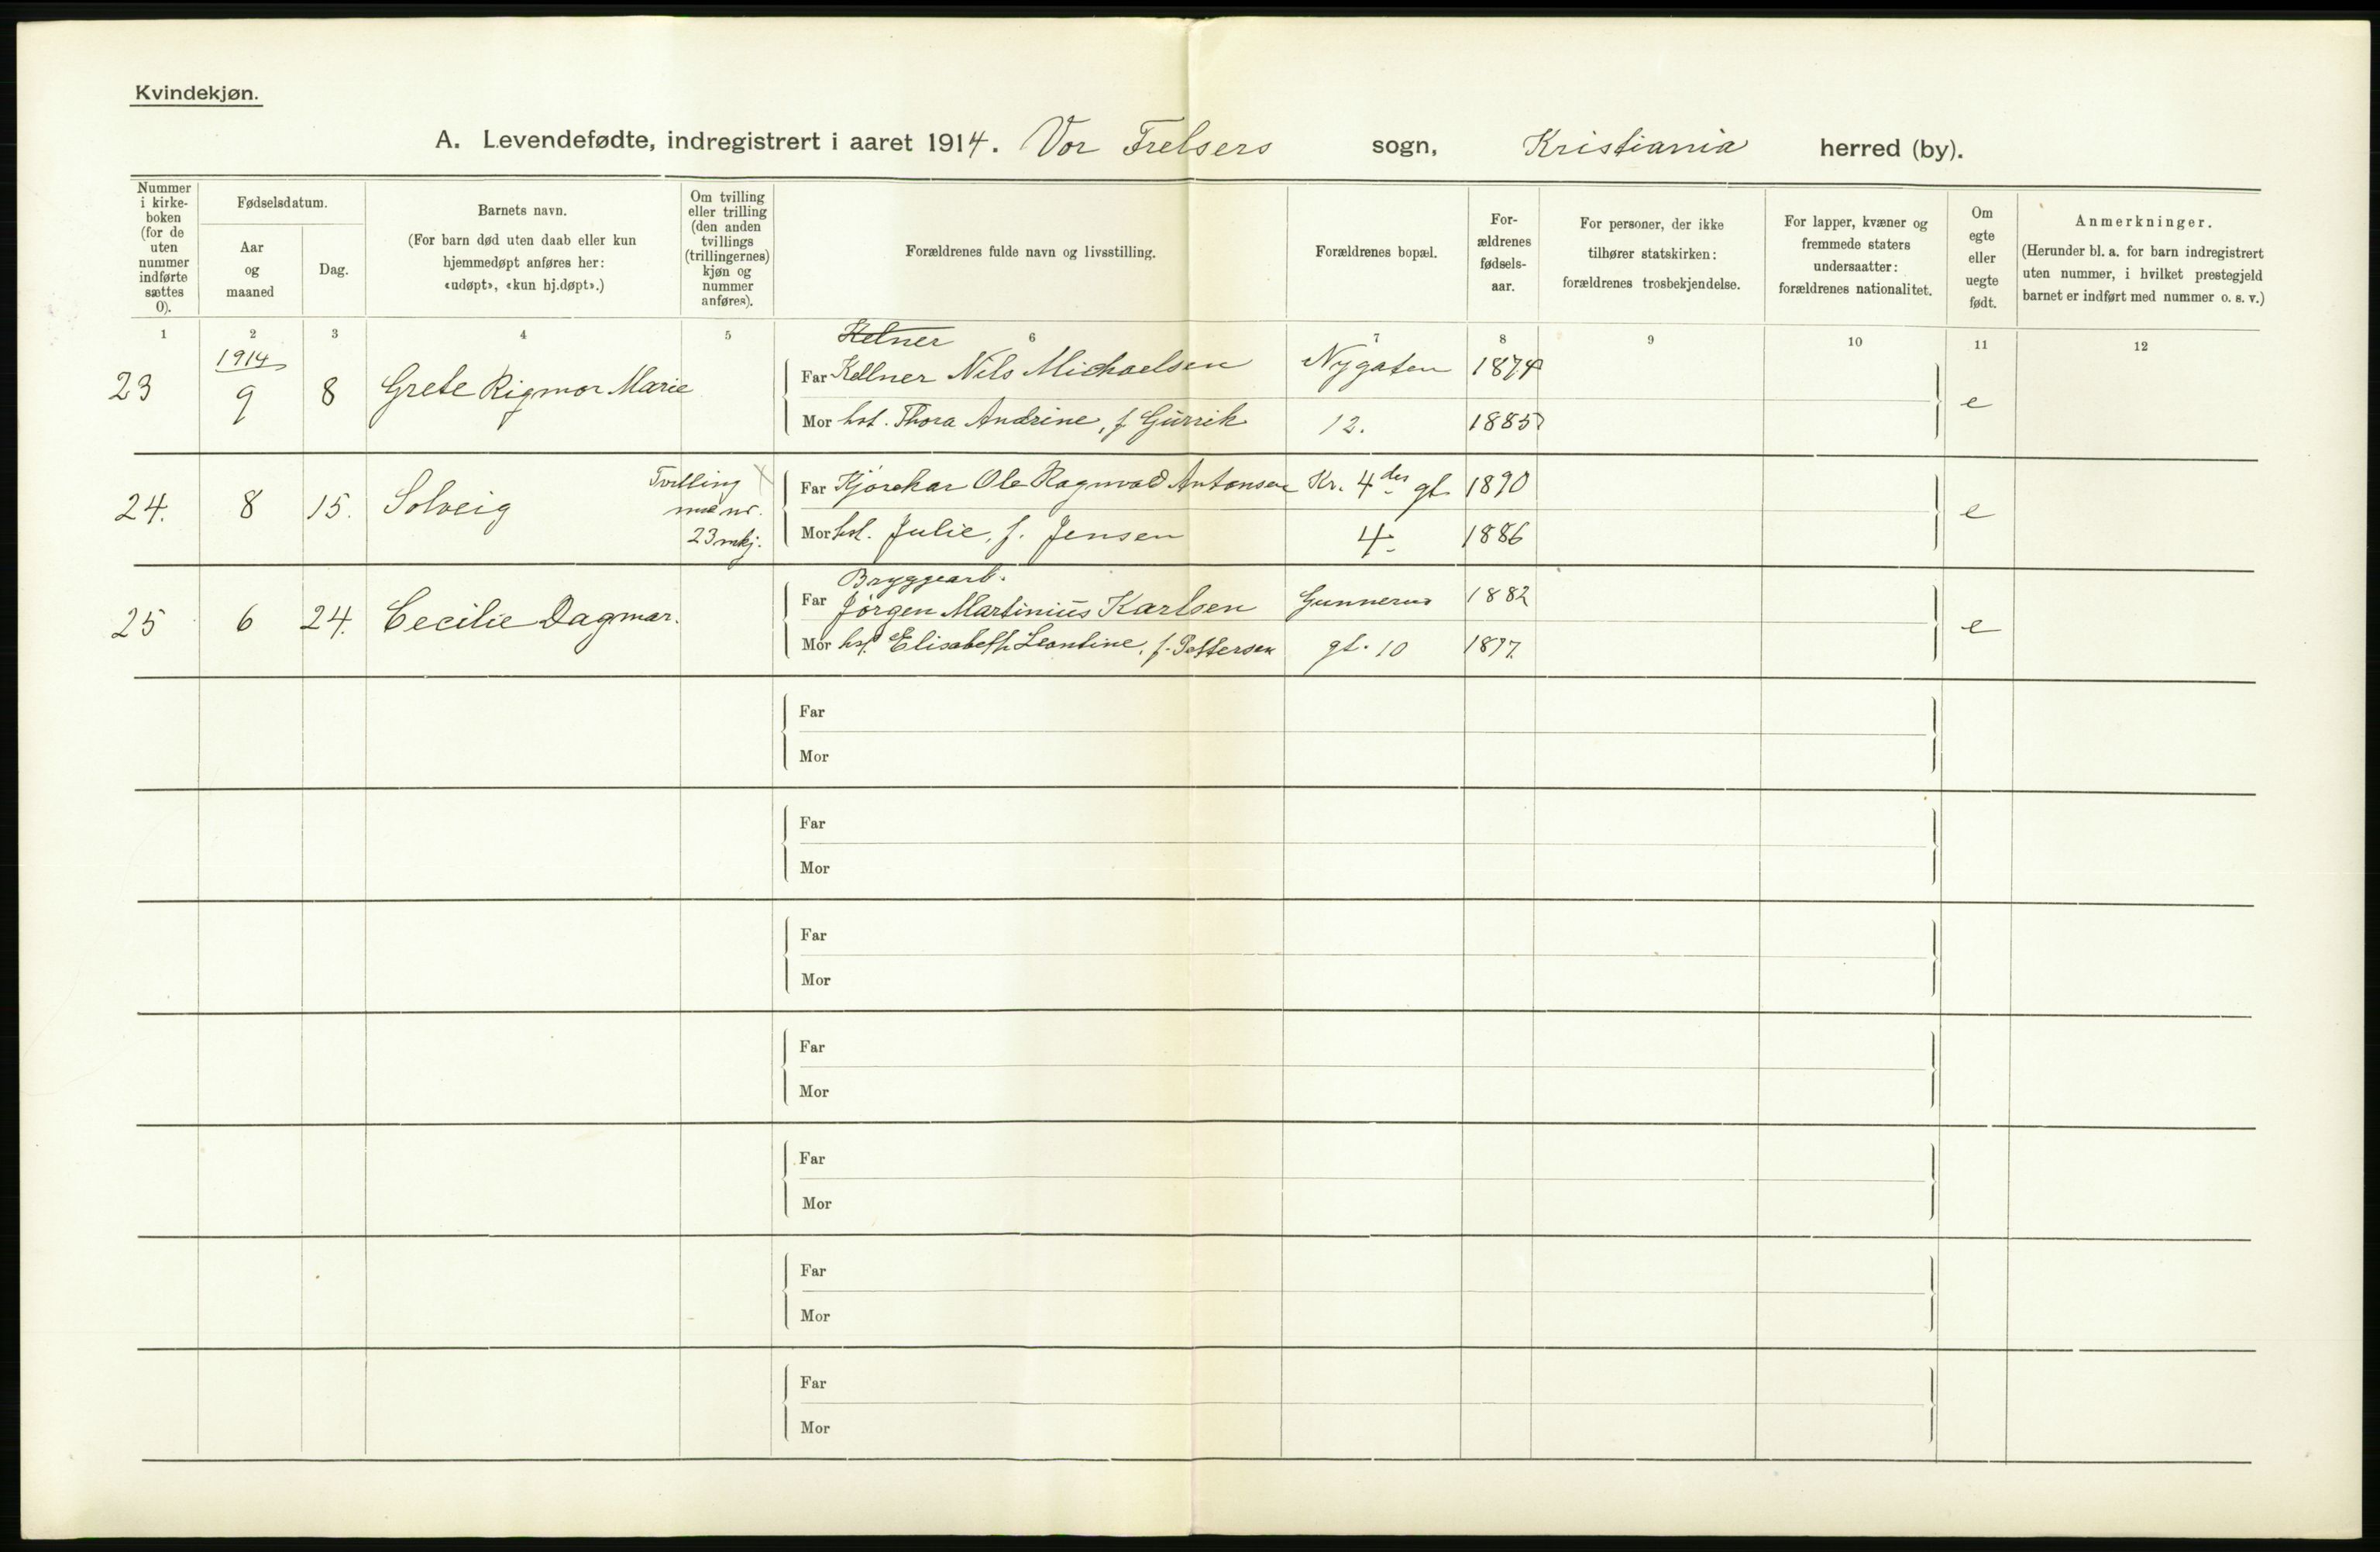 Kvindekjøn.
A. Levendefødte, indregistrert i aaret 1914. Vor Frelsers sogn, Kristiania herred (by).
Nummer
i kirke-
boken
(for de
uten
nummer
indførte
sættes
0).
Fødselsdatum.
Aar
og
maaned
Dag.
Barnets navn.
(For barn død uten daab eller kun
hjemmedøpt anføres her:
«udøpt», «kun hj.døpt».)
Om tvilling
eller trilling
(den anden
tvillings
(trillingernes)
kjøn og
nummer
anføres).
Forældrenes fulde navn og livsstilling.
Forældrenes bopæl.
For-
ældrenes
fødsels-
aar.
For personer, der ikke
tilhører statskirken:
forældrenes trosbekjendelse.
For lapper, kvæner og
fremmede staters
undersaatter:
forældrenes nationalitet.
Om
egte
eller
uegte
født.
Anmerkninger.
(Herunder bl. a. for barn indregistrert
uten nummer, i hvilket prestegjeld
barnet er indført med nummer o. s. v.)
1 2 3 4 5 6 7 8 9 10 11 12
1914
Kelner
23 9 8 Grete Rigmor Marie Far Kellner Nils Michaelsen Nygaten 1874 e
Mor hst. Thora Andrine, f. Gurrik 12. 1885
24. 8 15. Solveig Tvilling Far Kjørekar Ole Ragnvald Antonsen Kr. 4des gt. 1890 e
nr.
23 mkj. Mor hst. Julie, f. Jensen 4. 1886
Bryggearb.
25 6 24. Cecilie Dagmar. Far Jørgen Martinius Karlsen Gunnerus 1882 e
Mor hst. Elisabeth Leontine, f. Pettersen gt. 10 1877.
Far
Mor
Far
Mor
Far
Mor
Far
Mor
Far
Mor
Far
Mor
Far
Mor